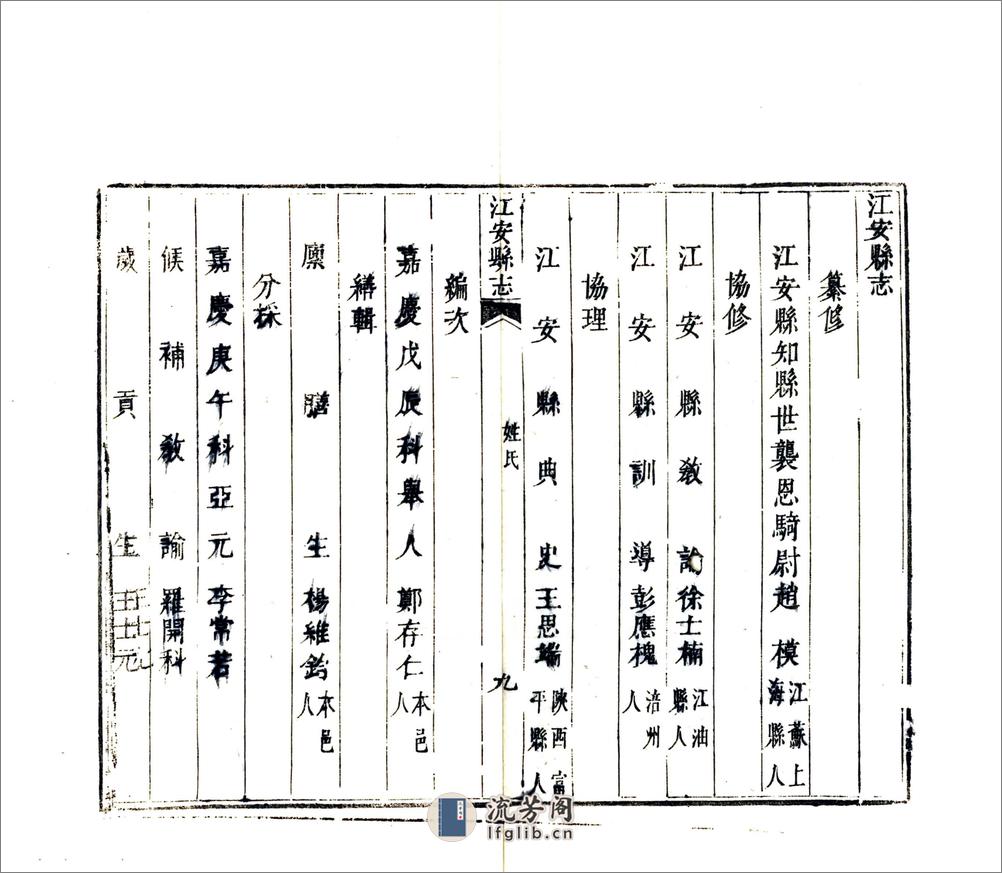 江安縣志
纂修
江安縣知縣世襲恩騎尉趙模江蘇上海縣人
協修
江安縣教諭徐士楠江油縣人
江安縣訓導彭應槐涪州人
協理
江安縣典史王思端陝西富平縣人
江安縣志
姓氏
九
編次
嘉慶戊辰科舉人鄭存仁本邑人
繕輯
廩膳生楊維本邑人
分採
嘉慶庚午科亞元李常若
候補教諭羅開科
歲貢生王士元
流芳阁
lfglib.cn